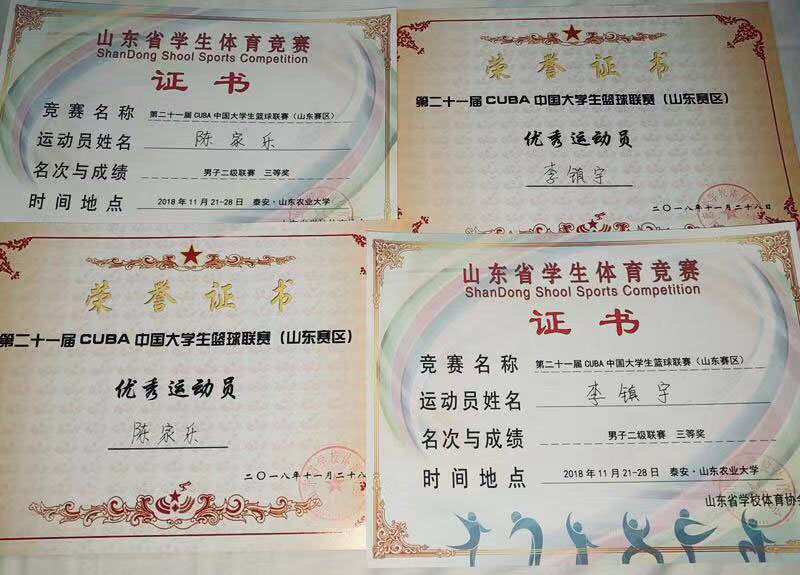 山东省学生体育竞赛
ShanDong Shool Sports Competition
证书
竞赛名称 第二十一届 CUBA 中国大学生篮球联赛（山东赛区）
运动员姓名 陈家乐
名次与成绩 男子二级联赛 三等奖
时间地点 2018 年 11 月 21-28 日 泰安·山东农业大学
荣誉证书
第二十一届 CUBA 中国大学生篮球联赛（山东赛区）
优秀运动员
李镇宇
二〇一八年十一月二十八日
荣誉证书
第二十一届 CUBA 中国大学生篮球联赛（山东赛区）
优秀运动员
陈家乐
二〇一八年十一月二十八
山东省学生体育竞赛
ShanDong Shool Sports Competition
证书
竞赛名称 第二十一届 CUBA 中国大学生篮球联赛（山东赛区）
运动员姓名 李镇宇
名次与成绩 男子二级联赛 三等奖
时间地点 2018 年 11 月 21-28 日 泰安·山东农业大学
山东省学校体育协会